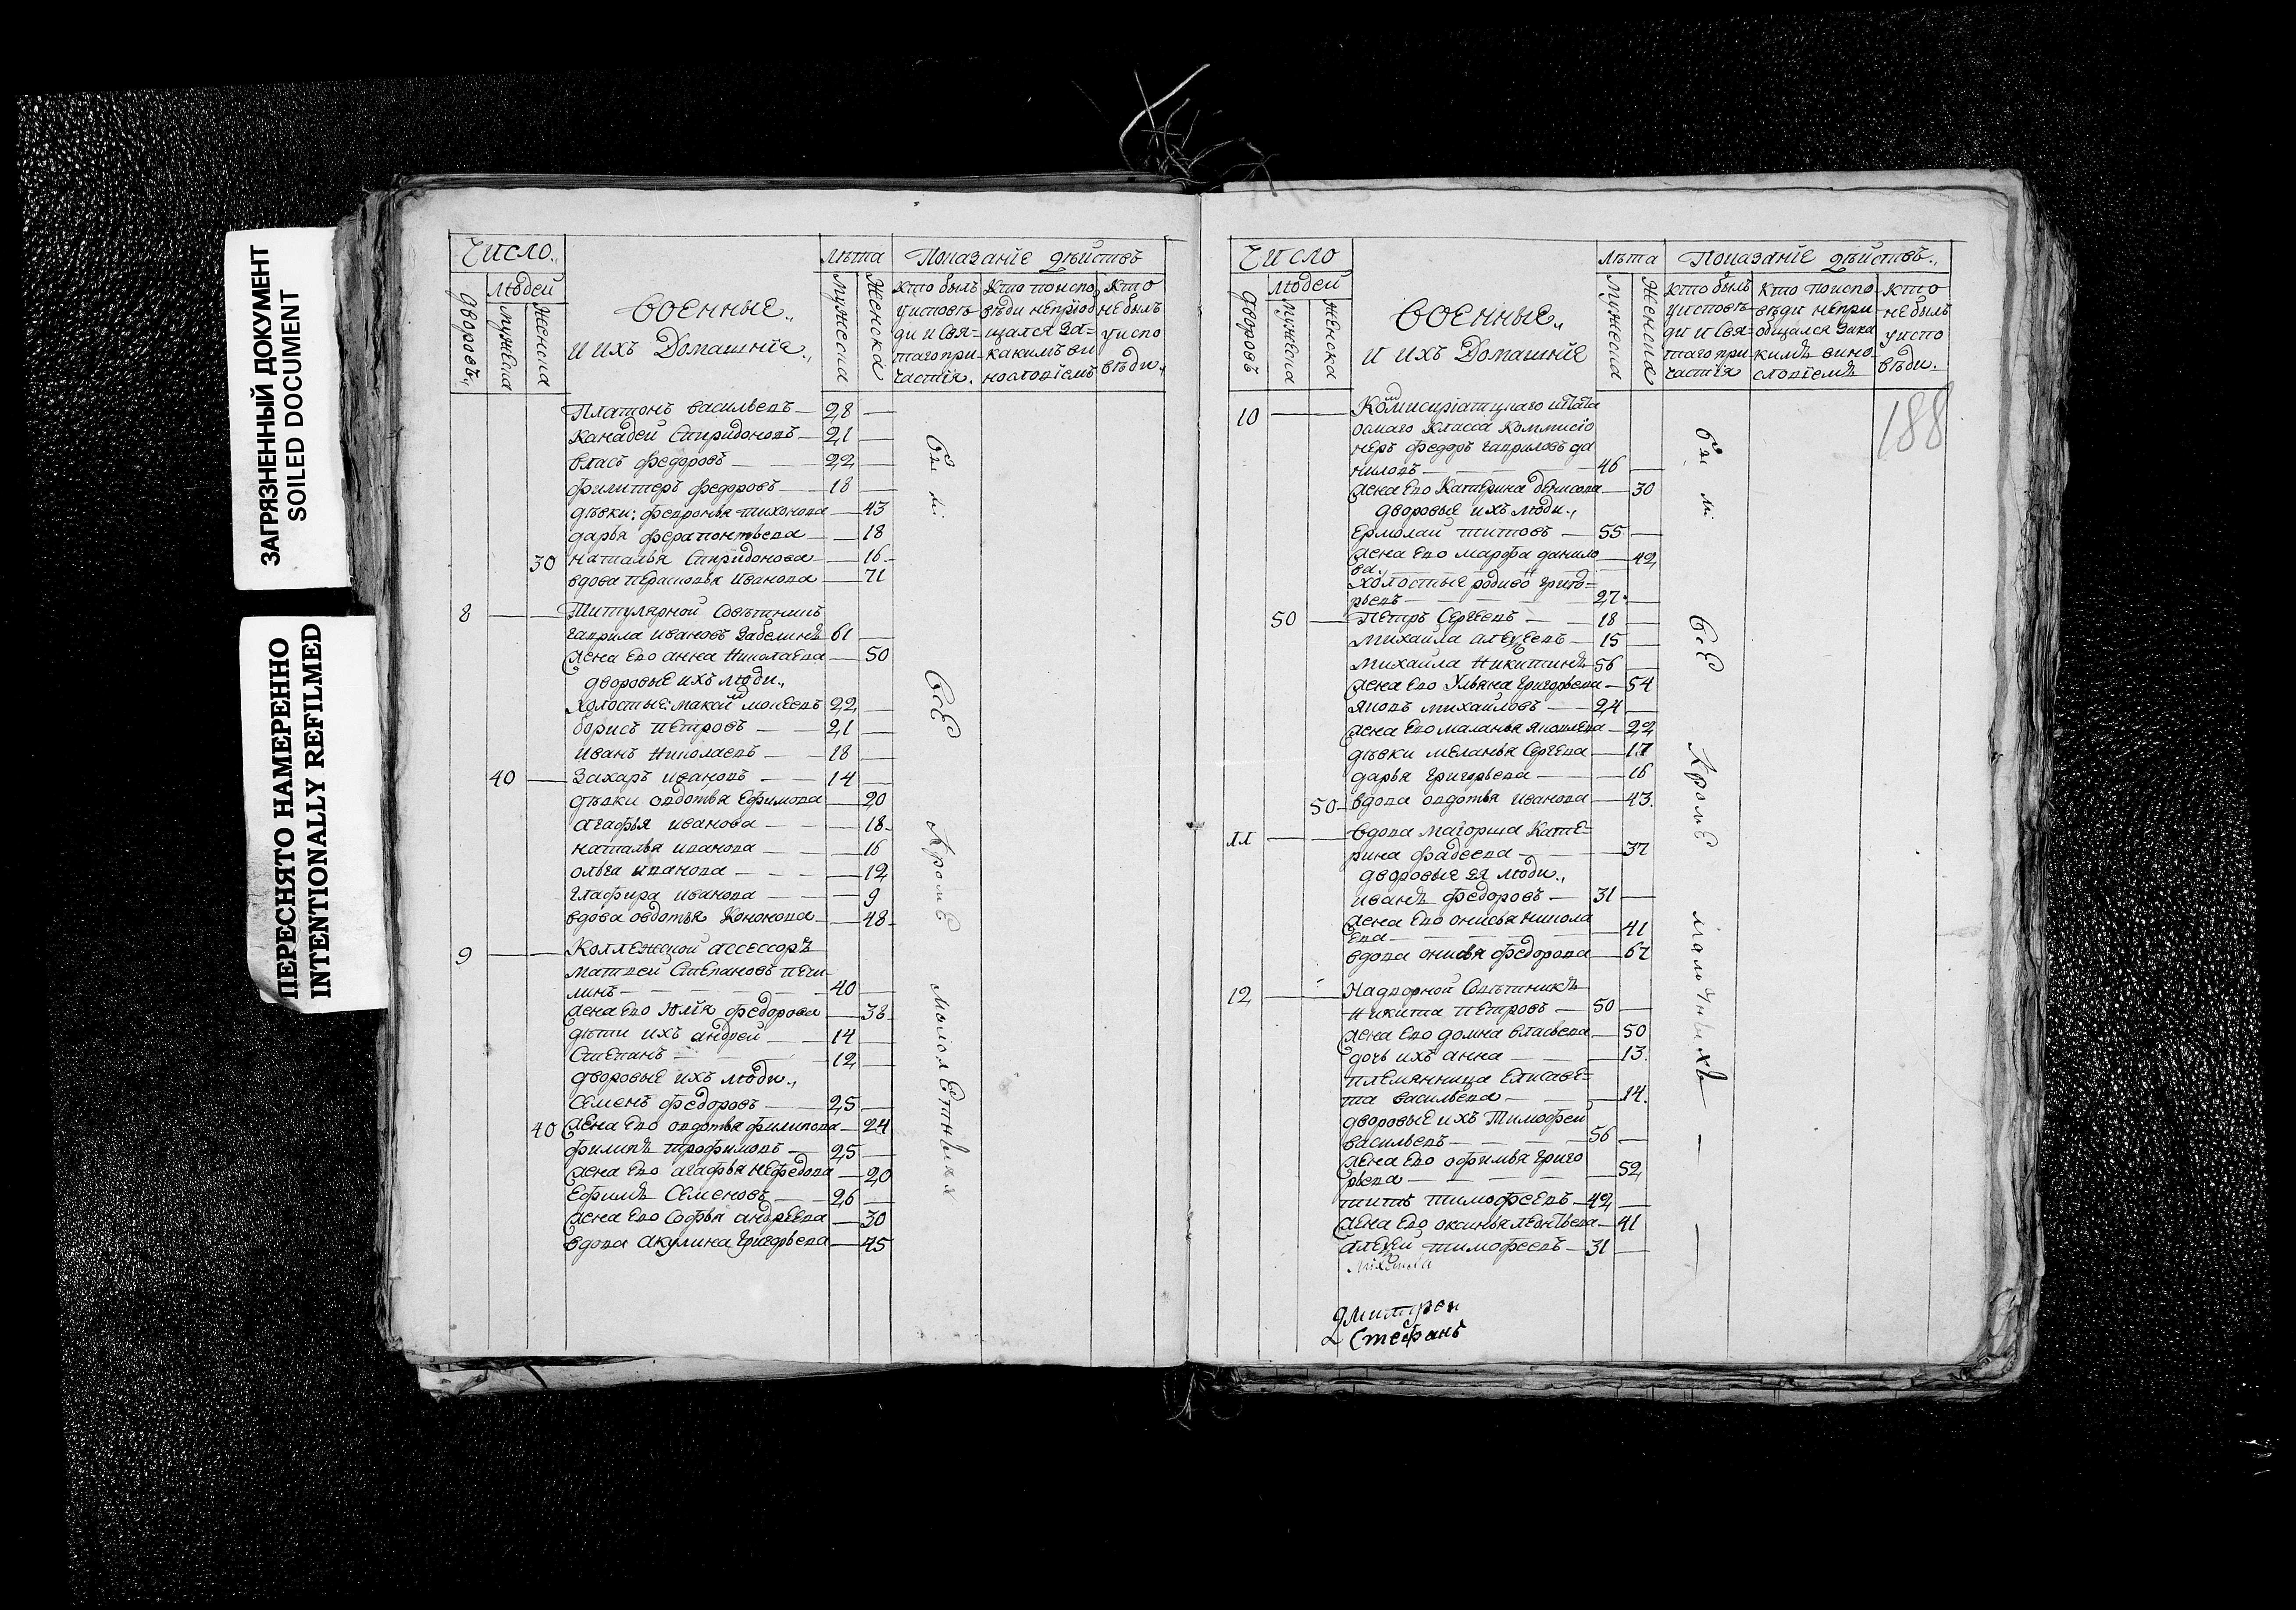 ЗАГРЯЗНЕННЫЙ ДОКУМЕНТ
SOILED DOCUMENT
ПЕРЕСНЯТО НАМЕРЕННО
INTENTIONALLY REFILMED
Число
Людей
Дворовъ
Мужеска
Женска
Военные
и ихъ Домашніе
Лѣта
Мужеска
Женска
Показаніе дѣйствъ
Кто былъ
у исповѣ
ди и Свя-
таго при-
частія.
Кто по испо
вѣди не приоб
щался за-
какимъ ви
нословіемъ
Кто
не былъ
у испо
вѣди.
Платонъ васильевъ 28
Спиридоновъ 21
власъ федоровъ 22
филитеръ федоровъ 18
дѣвки: февронья тихонова 43
дарья ферапонтьева 18
30 наталья Спиридонова 16
вдова перасковья Иванова 71
8 Титулярной Совѣтникъ
гаврила ивановъ Забелинъ 61
жена ево анна Николаева 50
дворовые ихъ люди
Холостые: максимъ 22
борисъ петровъ 21
иванъ Николаевъ 18
40 Захаръ ивановъ 14
дѣвки авдотья Ефимова 20
агафья иванова 18
наталья иванова 16
ольга иванова 12
глафира иванова 9
вдова овдотья Кононова 48
9 Коллежской ассессоръ
матвей Степановъ печи
линъ 40
жена ево Юлія федорова 38
дѣти ихъ андрей 14
Степанъ 12
дворовые ихъ люди
Семенъ федоровъ 25
40 жена ево овдотья филипова 24
филипъ трофимовъ 25
жена ево агафья нефедова 20
Ефимъ Семеновъ 26
жена ево Софья андреева 30
вдова акулина григорьева 45
были
всѣ
кромѣ
малолѣтныхъ
Число
Людей
Дворовъ
Мужеска
Женска
Военные
и ихъ Домашніе
Лѣта
Мужеска
Женска
Показаніе дѣйствъ
Кто былъ
у исповѣ
ди и Свя-
таго при
частія
Кто по испо
вѣди не при
общался за ка
кимъ вино-
словіемъ
Кто
не былъ
у испо
вѣди.
188
10 Комисиріатцкаго штата
осмаго класса Коммисіо
неръ федоръ гавриловъ да
ниловъ 46
жена ево Катерина денисова 30
дворовые ихъ люди
Ермолай титовъ 55
жена ево марфа данило
ва 42
Холостые родивонъ григо-
рьевъ 27
50 Петръ Сергеевъ 18
михайла алексеевъ 15
михайла никитинъ 56
жена ево Ульяна григорьева 54
яковъ михайловъ 24
жена ево маланья яковлева 22
дѣвки меланья Сергева 17
дарья григорьева 16
50 вдова овдотья иванова 43
11 Вдова маіорша Кате-
рина фадеева 37
дворовые ея люди
иванъ федоровъ 31
жена ево онисья никола
ева 41
вдова онисья федорова 67
12 Надворной Совѣтникъ
Никита петровъ 50
жена ево домна власьева 50
дочь ихъ анна 13
племянница Елисаве-
та васильева 14
дворовые ихъ Тимофей
васильевъ 56
жена ево офимья григо
рьева 52
титъ тимофеевъ 42
жена ево оксинья леонтьева 41
алексей тимофеевъ 31
были
всѣ
кромѣ
малолѣтныхъ
Стефанъ